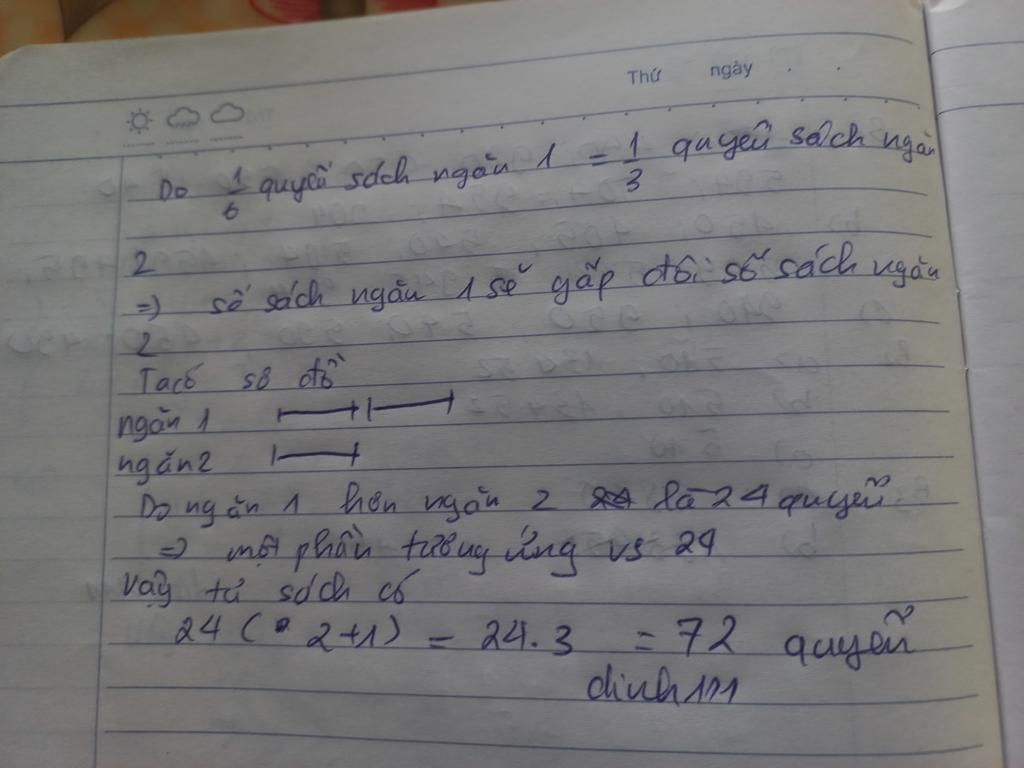 Thứ ngày . .
Do 1/6 quyển sách ngăn 1 = 1/3 quyển sách ngăn
2
=> số sách ngăn 1 sẽ gấp đôi số sách ngăn
2
Ta có sơ đồ
ngăn 1
ngăn 2
Do ngăn 1 hơn ngăn 2 là 24 quyển
=> một phần tương ứng vs 24
Vậy tủ sách có
24 ( 2+1) = 24.3 = 72 quyển
dinh111